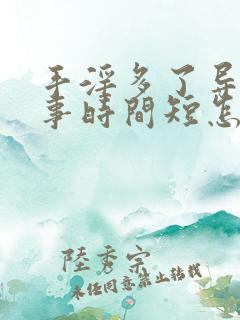 手淫多了导
事時間短怎
陸秀宗
未经同意禁止转载